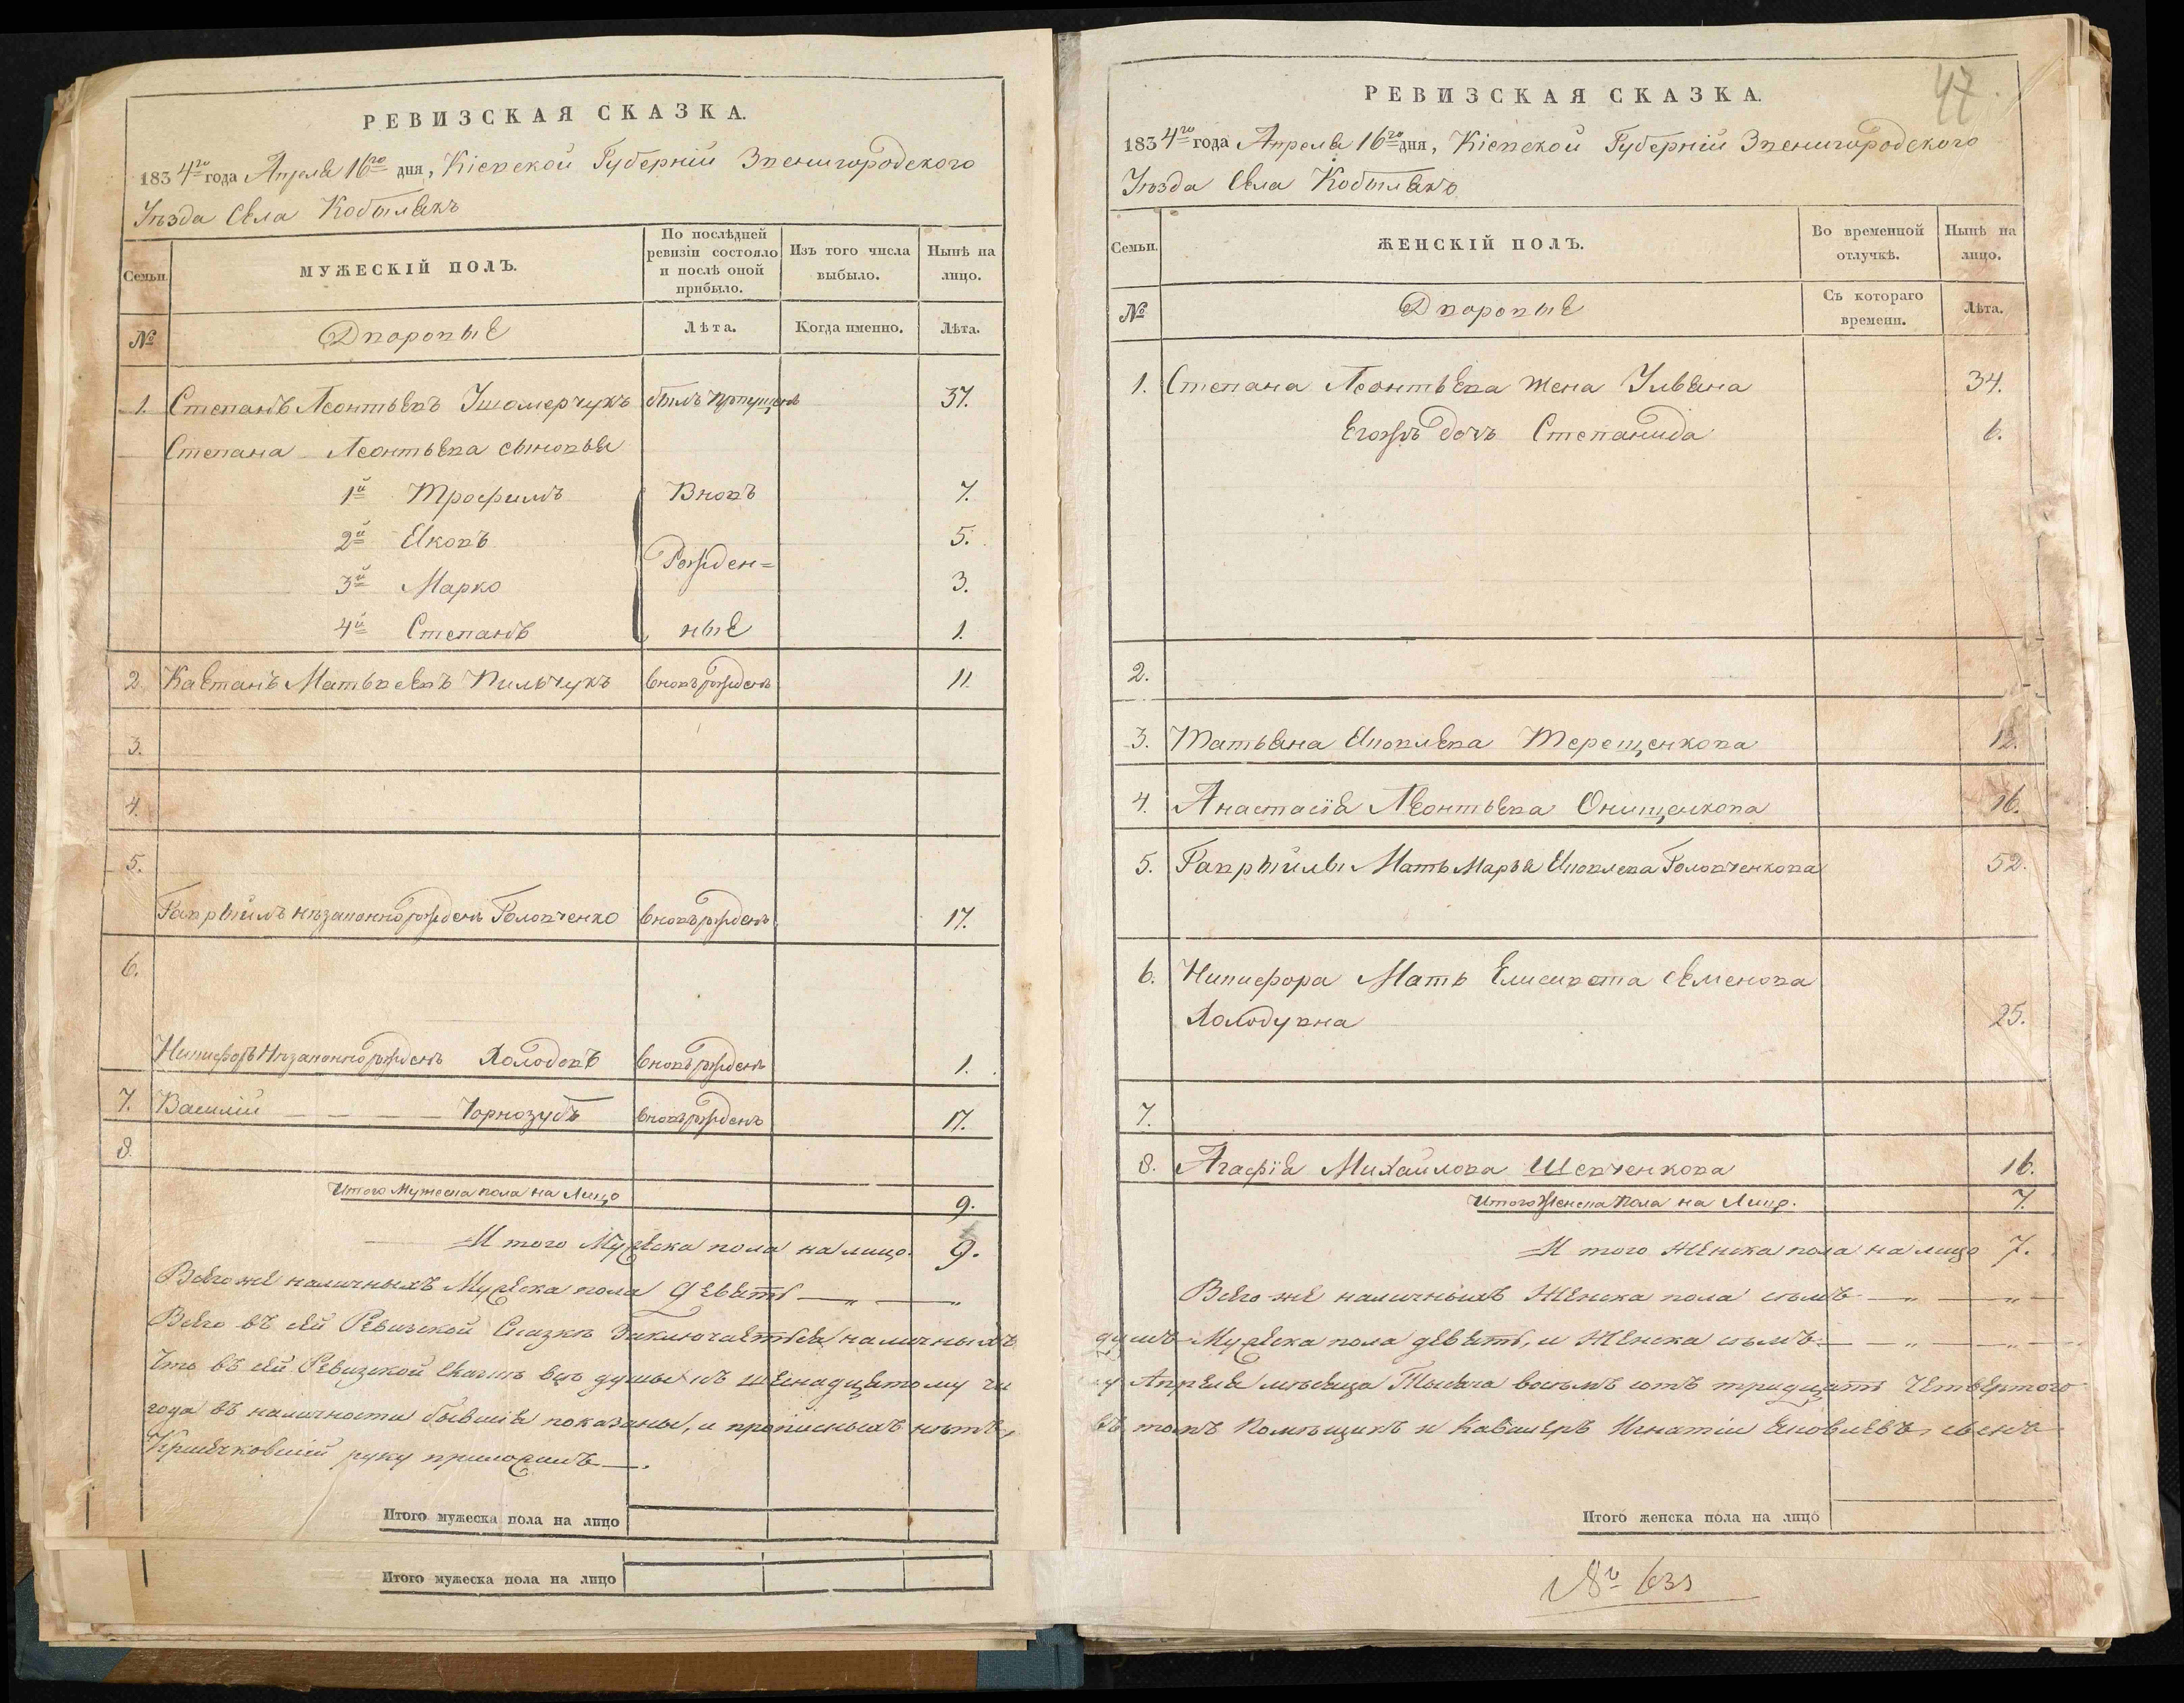 РЕВИЗСКАЯ СКАЗКА.
1834го года Апреля 16го дня, Кіевской Губерніи Звенигородского
Уѣзда Села Кобылякъ
Семьи.
МУЖЕСКІЙ ПОЛЪ.
По послѣдней ревизіи состояло и послѣ оной прибыло.
Изъ того числа выбыло.
Нынѣ на лицо.
№
Дворовые
Лѣта.
Когда именно.
Лѣта.
1. Степанъ Леонтьевъ былъ пропущенъ 37.
Степана Леонтьева сыновья
1й Трофимъ Вновь 7.
2й Яковъ 5.
Рожден=
3й Марко 3.
4й Степанъ ные 1.
2. Каетанъ Матвеевъ Пильчукъ вновь рожденъ 11.
3.
4.
5.
Гаврыйлъ нѣзаконнорожденъ Головченко вновь рожденъ 17.
6.
Ничифоръ Нѣзаконнорожденъ Холодовъ вновь рожденъ 1.
7. Василій — — — — Чорнозубъ вновь рожденъ 17.
8.
Итого Мужеска пола на Лицо 9.
И того Мужеска пола на лицо. 9.
Всего же наличныхъ Мужеска пола девять — „ — „
Всего въ сей Ревизской Сказкѣ Заключается наличныхъ
Что въ сей Ревизской Сказкѣ всѣ душы къ шеснадцятому чи
года въ наличности бывшія показаны, и прописныхъ нѣтъ,
руку приложилъ —.
Итого мужеска пола на лицо
Итого мужеска пола на лицо
47.
РЕВИЗСКАЯ СКАЗКА.
1834го года Апреля 16го дня, Кіевской Губерніи Звенигородского
Уѣзда Села Кобылякъ
Семьи.
ЖЕНСКІЙ ПОЛЪ.
Во временной отлучкѣ.
Нынѣ на лицо.
№
Дворовые
Съ котораго времени.
Лѣта.
1. Степана Леонтьева жена Ульяна 34.
Егожъ дочь Степанида 6.
2.
3. Татьяна Яковлева Терещенкова 12.
4. Анастасія Леонтьева Онищенкова 16.
5. Гаврыйлы Мать Марья Яковлева Головченкова 52.
6. Ничифора Мать Елисавета Семенова
Холодувна 25.
7.
8. Агафія Михайлова Шевченкова 16.
Итого Женска Пола на Лицо. 7.
И того Женска пола на лицо 7.
Всего же наличныхъ Женска пола съмъ — „ — „ —
душъ Мужеска пола девять, и Женска съмъ — — „ — „
лу Апреля мѣсяца Тысяча восъмъ сотъ тридцать Четвертого
въ томъ Помѣщикъ и Кавалеръ Игнатій Яковлевъ, сынъ
Итого женска пола на лицо